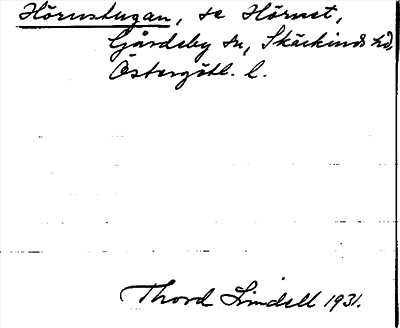 Hörnstugan, se Hörnet,
Gårdeby sn, Skärkinds hd,
Östergötl. l.
Thord Lindell 1931.